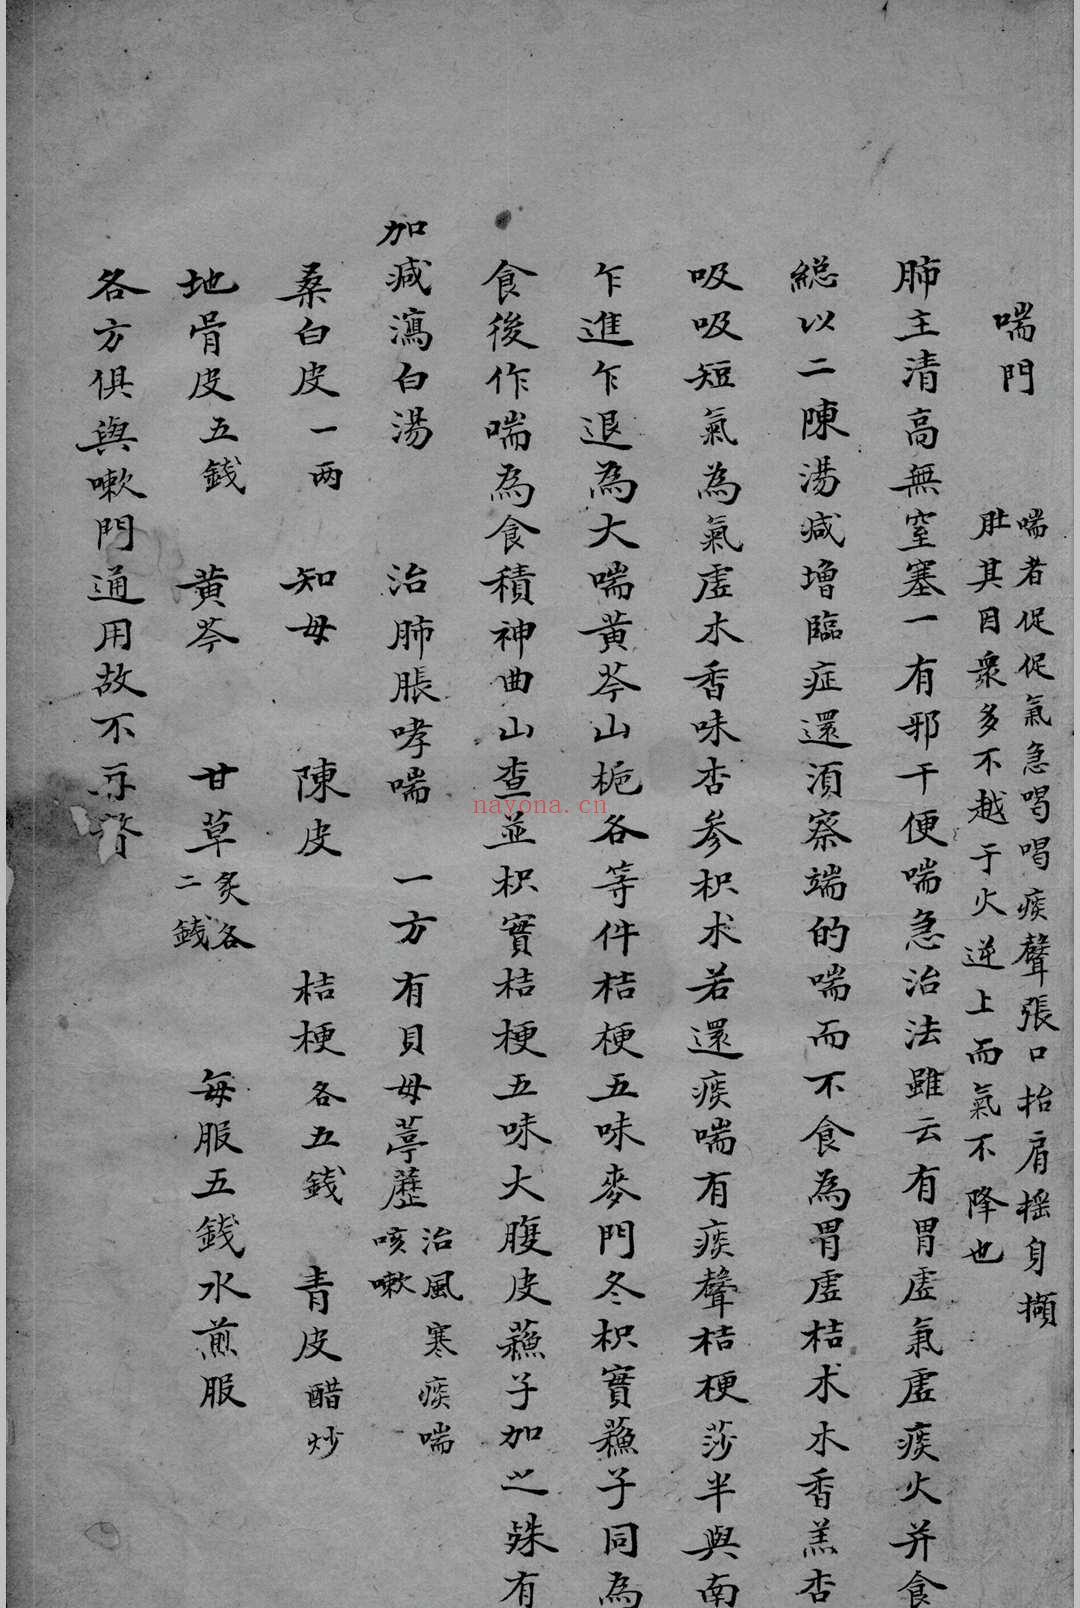 喘門
喘者促促氣急喝喝痰聲張口抬肩搖身擷
肚其目眾多不越于火逆上而氣不降也
肺主清高無窒塞一有邪干便喘急治法雖云有胃虛氣虛痰火并食
総以二陳湯減增臨症還須察端的喘而不食為胃虛桔术木香羔杏
吸吸短氣為氣虛木香味杏参枳术若還痰喘有痰聲桔梗莎半與南
乍進乍退為大喘黃芩山梔各等件桔梗五味麥門冬枳實蘓子同為
食後作喘為食積神曲山查並枳實桔梗五味大腹皮蘓子加之殊有
加減瀉白湯 治肺脹哮喘 一方有貝母葶藶 治風寒痰喘咳嗽
桑白皮一兩 知母 陳皮 桔梗各五錢 青皮醋炒
地骨皮五錢 黃芩 甘草炙各二錢 每服五錢水煎服
各方俱與嗽門通用故不再
nayona.cn